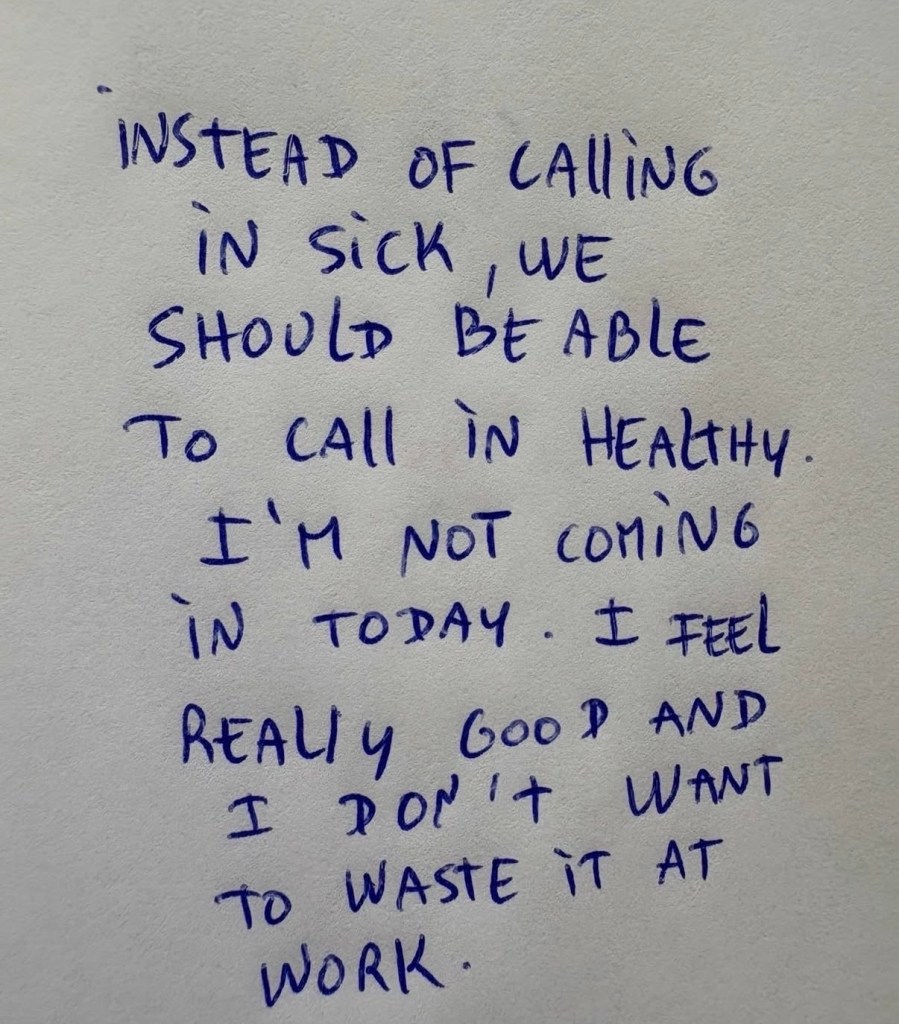 INSTEAD OF CALLING
IN SICK, WE
SHOULD BE ABLE
TO CALL IN HEALTHY.
I'M NOT COMING
IN TODAY. I FEEL
REALLY GOOD AND
I DON'T WANT
TO WASTE IT AT
WORK.